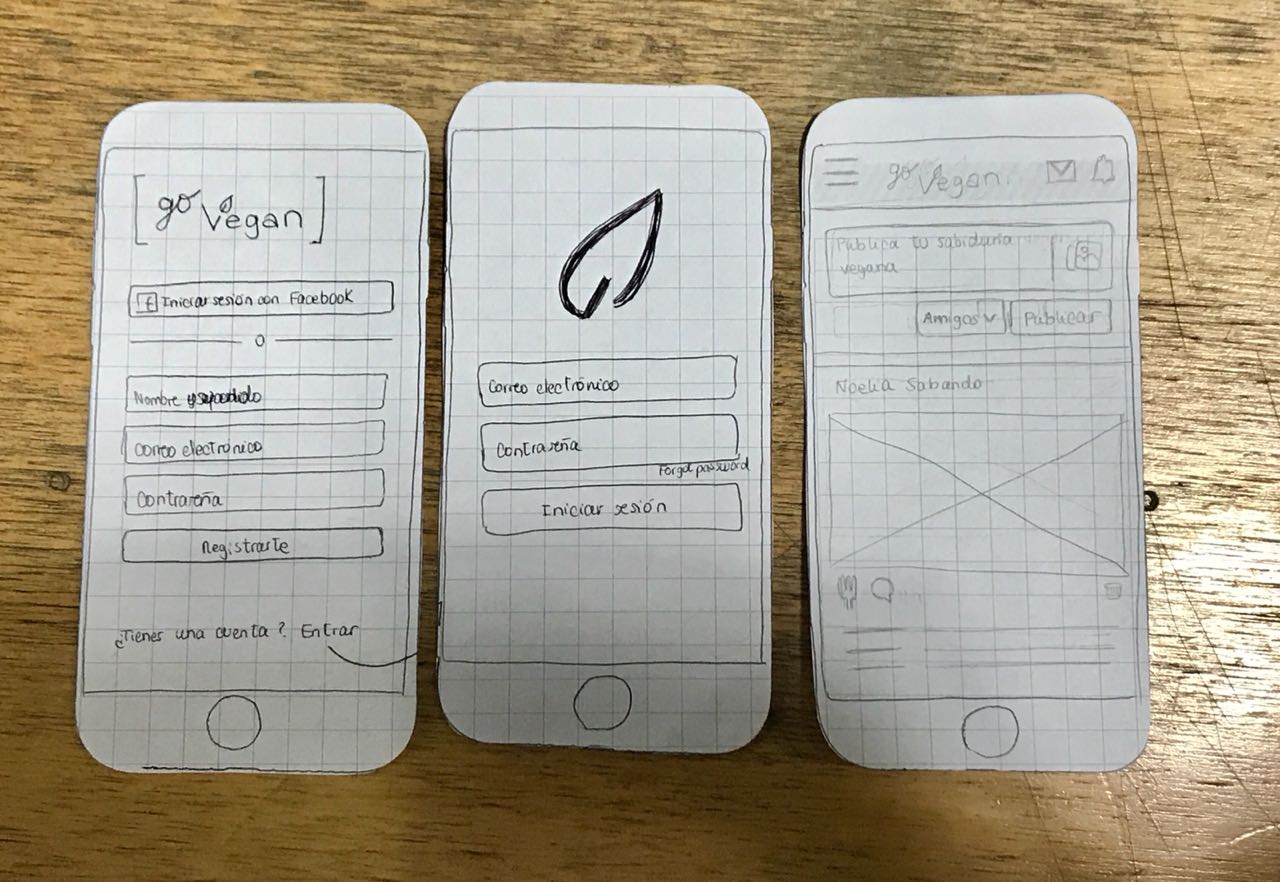 go
Vegan
f Iniciar sesión con Facebook
o
Nombre y
Correo electrónico
Contraseña
Registrarte
¿Tienes una cuenta? Entrar
Correo electrónico
Contraseña
Forgot password
Iniciar sesión
go Vegan
Publica tu sabiduria
vegana
Amigos
Publicar
Noelia Sabando